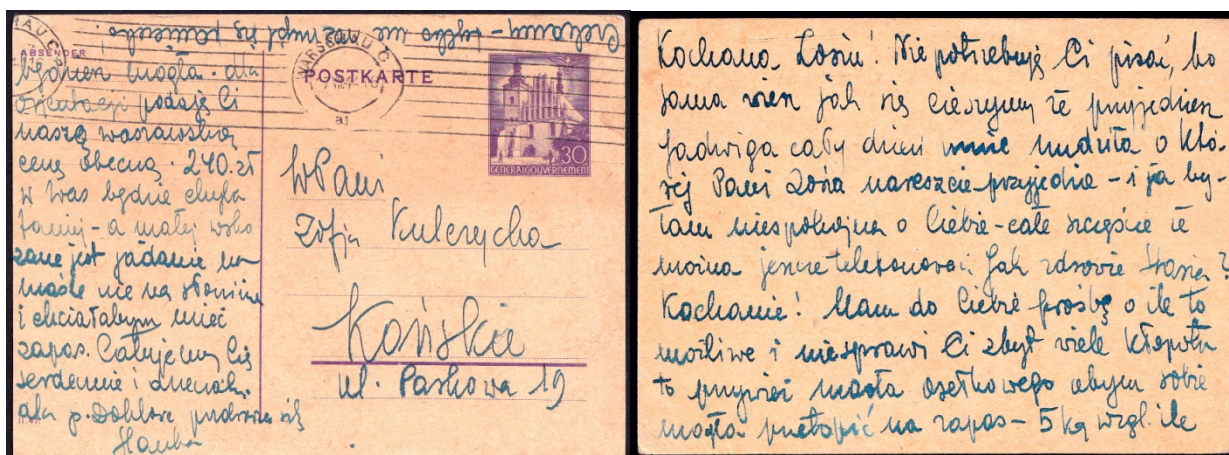 Czekamy - tylko nie rozmyśl się panienko!
ABSENDER
WARSCHAU C
POSTKARTE
będziesz mogła - dla
orientacji podaję Ci
naszą warszawską
cenę obecną. 240. zł
u Was będzie chyba
taniej - a małej wska
zane jest jadanie na
maśle nie na słoninie
i chciałabym mieć
zapas. Całujemy Cię
serdecznie i
dla p. Doktora
Hanka
30
GENERALGOUVERNEMENT
WPani
Zofja Kulczycka
Końskie
ul. Parkowa 19
Kochana Zosiu! Nie potrzebuję Ci pisać, bo
sama wiesz jak się cieszymy że przyjedziesz
Jadwiga cały dzień mnie nudziła o któ-
rej Pani Zosia nareszcie przyjedzie - i ja by-
łam niespokojna o Ciebie - całe szczęście że
można jeszcze telefonować. Jak zdrowie Stasia?
Kochanie! Mam do Ciebie prośbę o ile to
możliwe i niesprawi Ci zbyt wiele kłopotu
to przywieź masła osełkowego abym sobie
mogła przetopić na zapas - 5 kg wzgl. ile